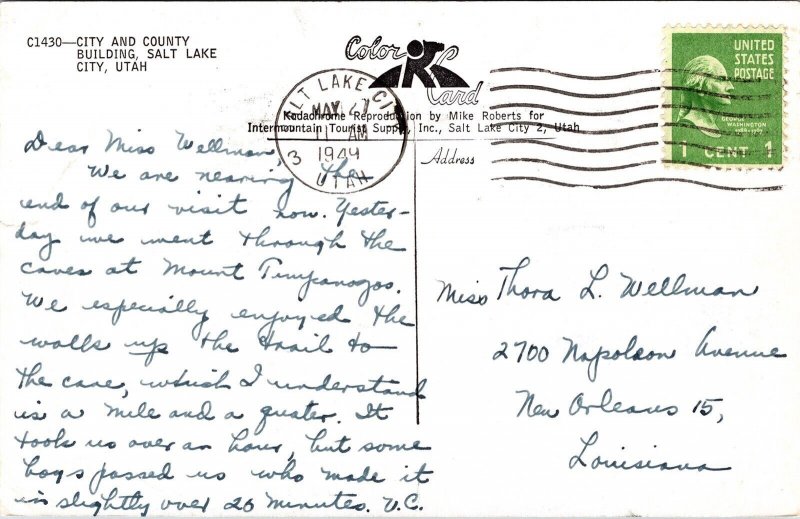 C1430—CITY AND COUNTY
BUILDING, SALT LAKE
CITY, UTAH
Color
Card
Kodachrome Reproduction by Mike Roberts for
Intermountain Tourist Supply, Inc., Salt Lake City 2, Utah
SALT LAKE CITY
MAY
11 AM
1949
3
UTAH
UNITED
STATES
POSTAGE
WASHINGTON
1 CENT 1
Dear Miss Wellman,
We are nearing the
end of our visit now. Yester-
day we went through the
caves at Mount Timpanogos.
We especially enjoyed the
walls up the trail to
the cave, which I understand
is a mile and a quater. It
took us over an hour, but some
boys passed us who made it
in slightly over 20 minutes. V.C.
Address
Miss Thora L. Wellman
2700 Napoleon Avenue
New Orleans 15,
Louisiana